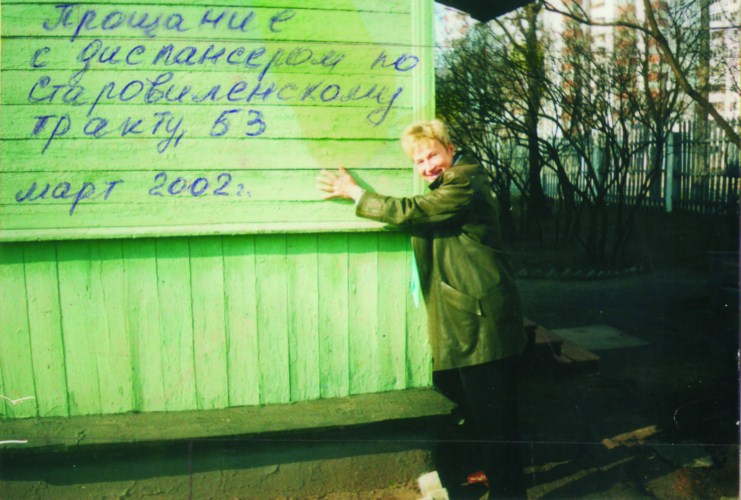 Прощание
с диспансером по
Старовиленскому
тракту, 53
март 2002 г.